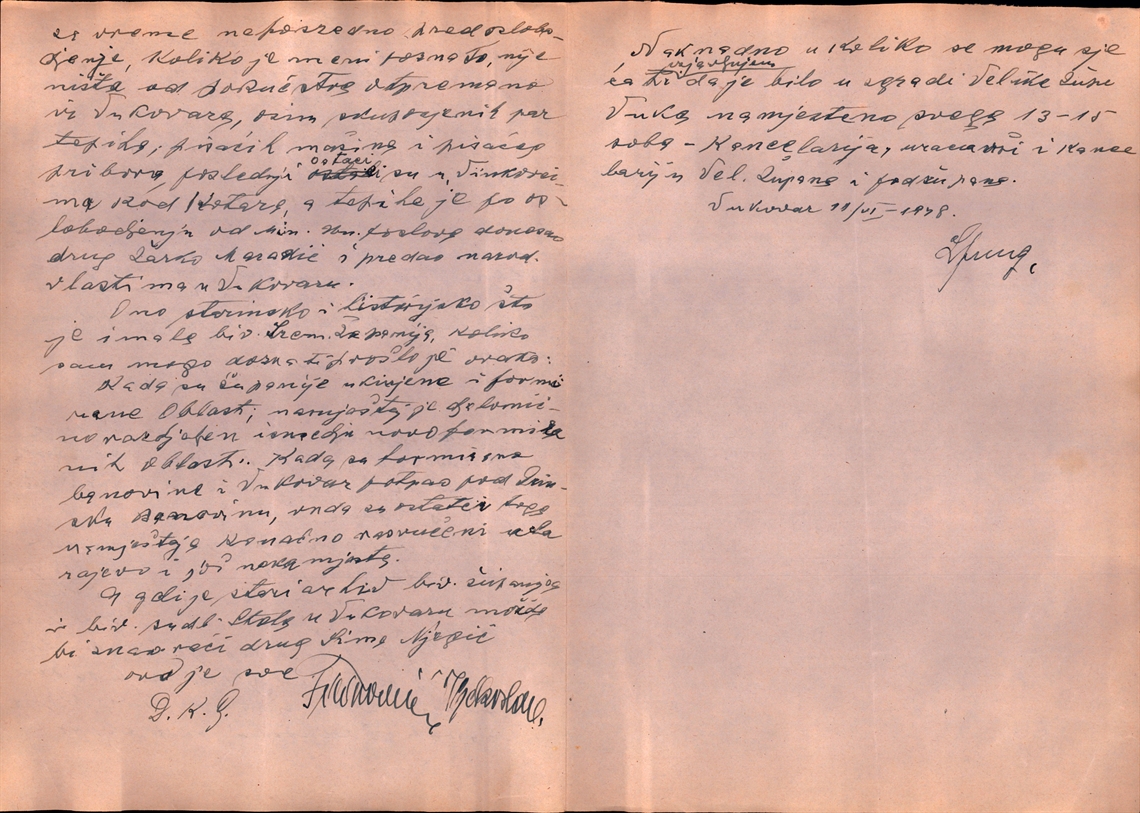 za vreme neposredno pred oslobo-
djenje, koliko je meni poznato, nije
ništa od pokućstva otpremano
iz Vukovara, osim skupocjenih par
tepiha, pisaćih mašina i pisaćeg
pribora, poslednji ostaci su u Vinkovci-
ma kod Kotara, a tepihe je po os-
lobodjenju od Min. un. poslova donesao
drug Žarko Maradić i predao narod.
vlastima u Vukovaru.
Ono starinsko i historijsko što
je imala biv. Srem. Županija, koliko
sam mogo doznati prošlo je ovako:
Kada su županije ukinjene i formi
rane Oblasti, namještaj je djelomič-
no razdjeljen izmedju novoformira
nih Oblasti. Kada su formirane
banovine i Vukovar potpao pod Drin-
sku Banovinu, onda su ostatci toga
namještaja konačno razvučeni u Sa
rajevo i još neka mjesta.
A gdi je stari arhiv biv. županije
i biv. sudb. Stola u Vukovaru možda
bi znao reći drug Sima Njegić
ovo je sve
D. K. G.
Naknadno u koliko se mogu sje
izjavljujem
ćati da je bilo u zgradi Velike Župe
Vuka namješteno svega 13-15
soba - Kancelarija, uračunavši i kance
lariju Vel. Župana i podžupana.
Vukovar 11/VI-1948.